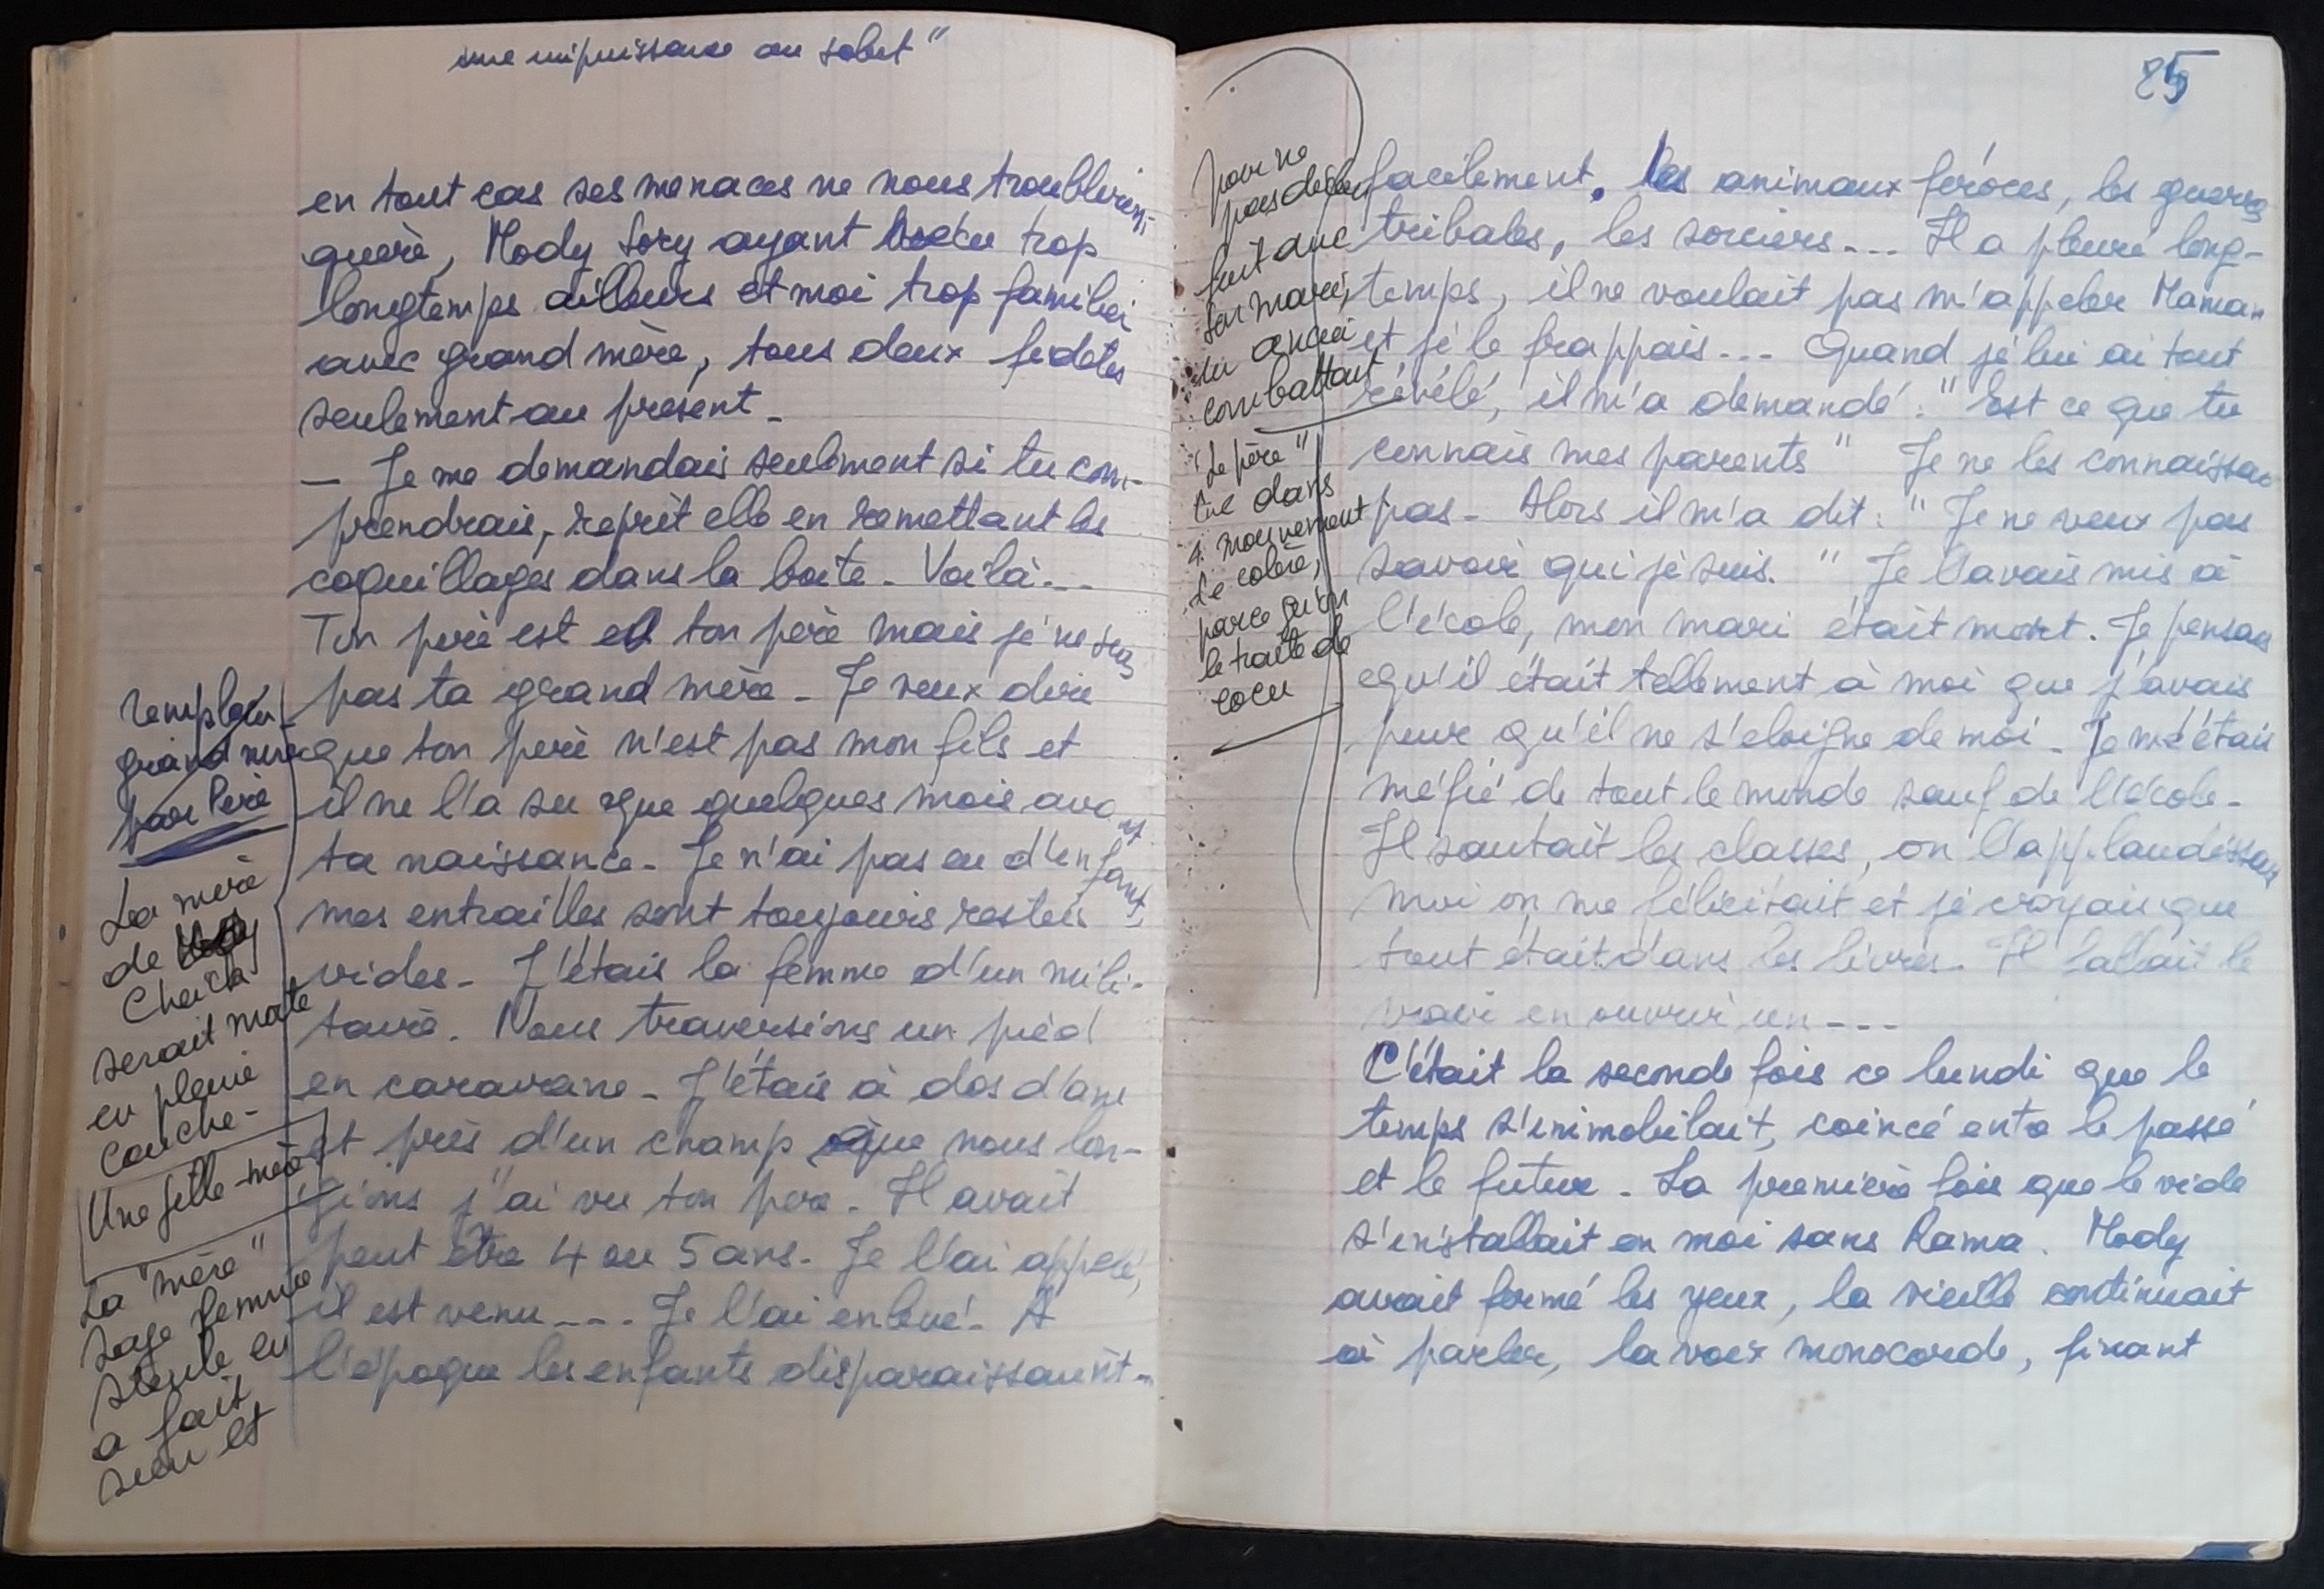 une impuissance au sabot"
en tout cas ses menaces ne nous troublèrent
guère, Mody Sory ayant vécu trop
longtemps ailleurs et moi trop familier
avec grand mère, tous deux fidèles
seulement au présent -
- Je me demandais seulement si tu com-
prendrais, reprit elle en remettant les
coquillages dans la boite - Voilà...
Ton père est ton père mais je ne suis
pas ta grand mère - Je veux dire
que ton père n'est pas mon fils et
il ne l'a su que quelques mois avant
ta naissance - Je n'ai pas eu d'enfant,
mes entrailles sont toujours restées
vides - J'étais la femme d'un mili-
taire. Nous traversions un pied
en caravane - J'étais à dos d'ane
et près d'un champ que nous lon-
gions j'ai vu ton père - Il avait
peut être 4 ou 5 ans - Je l'ai appelé,
il est venu --- Je l'ai enlevé - A
l'époque les enfants disparaissaient -
remplacer
grand mère
par Père
La mère
de
Cheick
serait morte
en pleine
couche -
Une fille-mère
La "mère"
sage femme
stérile en
a fait
sien et
25
pour ne
pas
fuit avec
son mari,
un ancien
combattant
"Le père"
tué dans
1 mouvement
de colère,
parce qu'on
le traite de
cocu
facilement. les animaux féroces, les guerres
tribales, les sorciers --- Il a pleuré long-
temps, il ne voulait pas m'appeler Maman
et je le frappais --- Quand je lui ai tout
révélé, il m'a demandé : "Est ce que tu
connais mes parents" Je ne les connaissais
pas - Alors il m'a dit : "Je ne veux pas
savoir qui je suis." Je l'avais mis à
l'école, mon mari était mort. Je pensais
qu'il était tellement à moi que j'avais
peur qu'il ne s'eloigne de moi - Je m'étais
méfié de tout le monde sauf de l'école -
Il sautait les classes, on l'applaudissait
moi on me félicitait et je croyais que
tout était dans les livres - Il fallait le
voir en ouvrir un ---
C'était la seconde fois ce lundi que le
temps s'immobilait, coincé entre le passé
et le futur - La première fois que le vide
s'installait en moi sans Rama. Mody
avait fermé les yeux, la vieille continuait
à parler, la voix monocorde, fixant